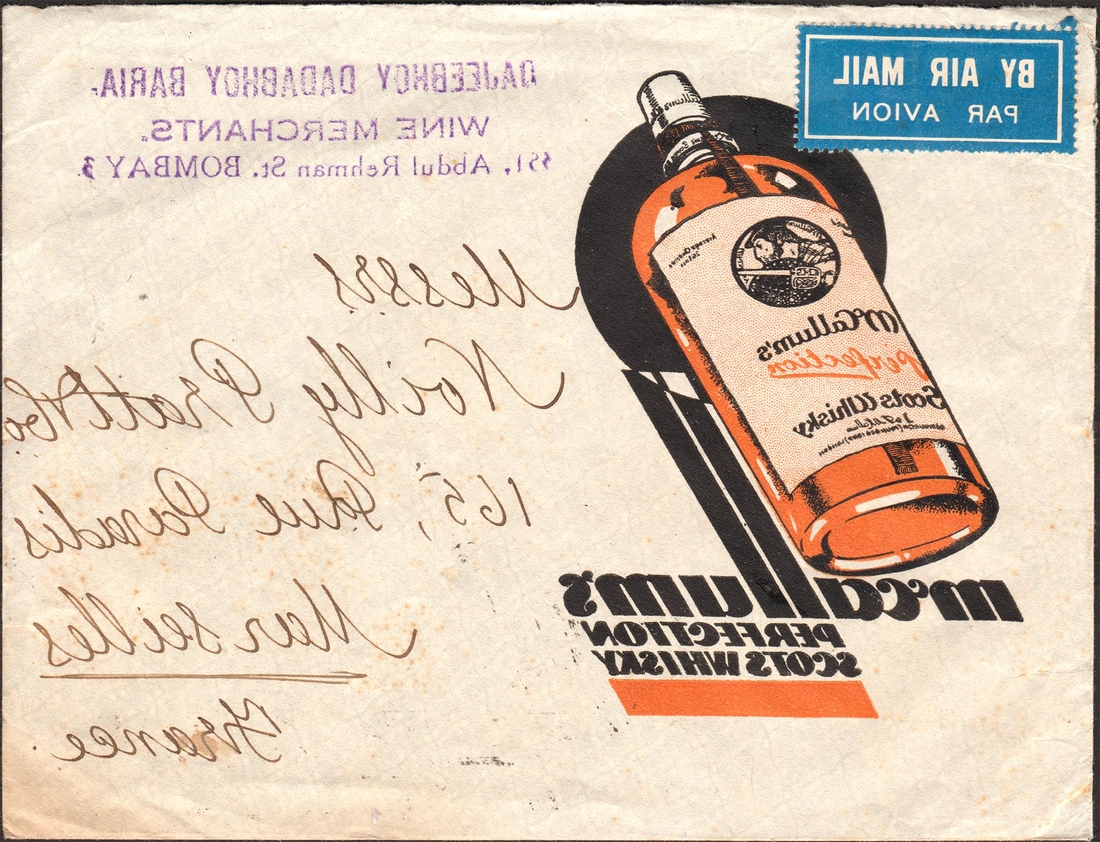 BY AIR MAIL
PAR AVION
DAJEEBHOY DADABHOY BARIA.
WINE MERCHANTS.
Abdul Rehman St. BOMBAY 3
Messrs
Noilly Pratt & Co
165, Rue Paradis
Marseilles
France
McCallum's
Perfection
Scots Whisky
McCallum's
PERFECTION
SCOTS WHISKY